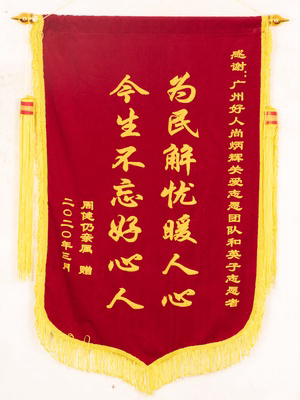 感谢:广州好人尚炳辉关爱志愿团队和英子志愿者
为民解忧暖人心
今生不忘好心人
周健仍亲属 赠
二〇二〇年三月